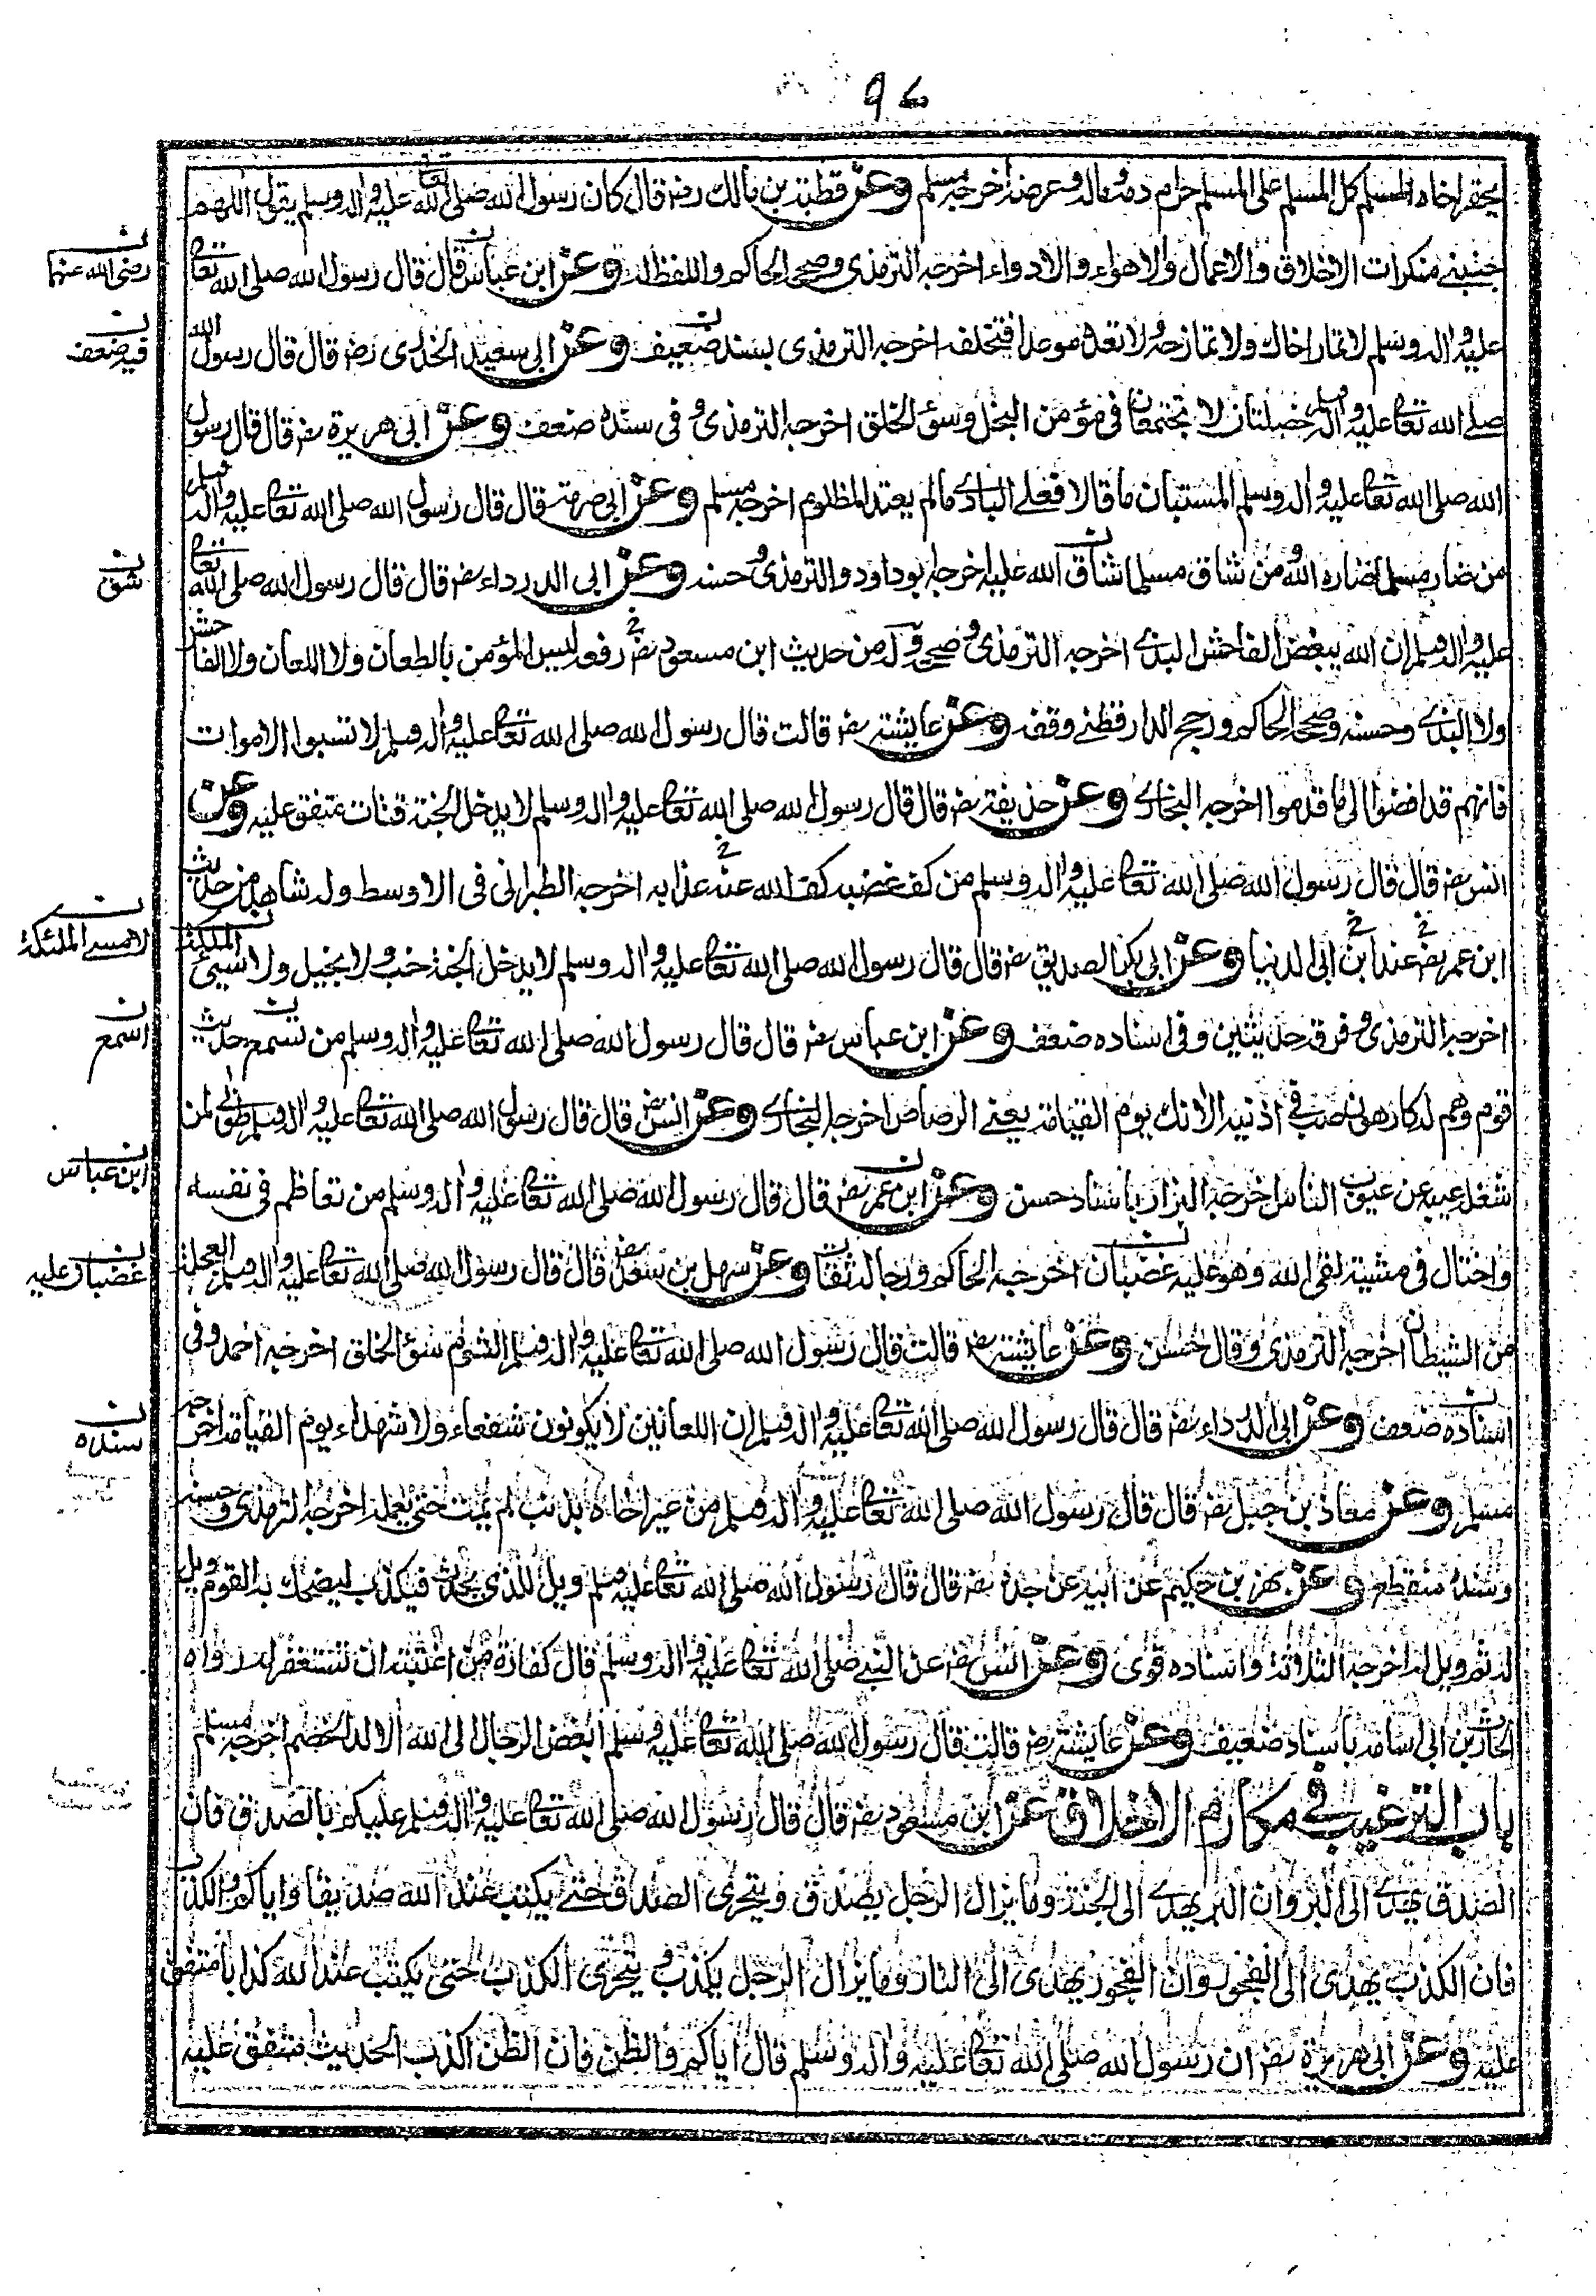 ٩٤
يحقر اخاه المسلم كل المسلم على المسلم حرام دمه وماله وعرضه اخرجه مسلم وعن قطبة بن مالك رضه قال كان رسول الله صلى الله تعا عليه واله وسلم يقول اللهم
جنبني منكرات الاخلاق والاعمال والاهواء والادواء اخرجه الترمذي وصححه الحاكم واللفظ له وعن ابن عباس قال قال رسول الله صلى الله تعا
رضى الله عنهما
عليه واله وسلم لا تمار اخاك ولا تمازحه ولا تعده موعدا فتخلفه اخرجه الترمذي بسند ضعيف وعن ابي سعيد الخدري رضه قال قال رسول الله
فيه ضعف
صلى الله تعا عليه واله وسلم خصلتان لا تجتمعان في مؤمن البخل وسوء الخلق اخرجه الترمذي وفي سنده ضعف وعن ابي هريرة رضه قال قال رسول
الله صلى الله تعا عليه واله وسلم المستبان ما قالا فعلى البادي مالم يعتد المظلوم اخرجه مسلم وعن ابي صرمة قال قال رسول الله صلى الله تعا عليه واله وسلم
من ضار مسلما ضاره الله ومن شاق مسلما شاق الله عليه اخرجه ابوداود والترمذي وحسنه وعن ابى الدرداء رضه قال قال رسول الله صلى الله تعا
شق
عليه واله وسلم ان الله يبغض الفاحش البذي اخرجه الترمذي وصححه وله من حديث ابن مسعود رضه رفعه ليس المؤمن بالطعان ولا اللعان ولا الفاحش
ولا البذي وحسنه وصححه الحاكم ورجح الدارقطني وقفه وعن عايشة رضه قالت قال رسول الله صلى الله تعا عليه واله وسلم لا تسبوا الاموات
فانهم قد افضوا الى ما قدموا اخرجه البخاري وعن حذيفة رضه قال قال رسول الله صلى الله تعا عليه واله وسلم لا يدخل الجنة قتات متفق عليه وعن
انس رضه قال قال رسول الله صلى الله تعا عليه واله وسلم من كف غضبه كف الله عنه عذابه اخرجه الطبراني في الاوسط وله شاهد من حديث
ابن عمر رضه عند ابن ابى الدنيا وعن ابي بكر الصديق رضه قال قال رسول الله صلى الله تعا عليه واله وسلم لا يدخل الجنة خب ولا بخيل ولا سيئ الملكة
لا مسئ الملئكة
اخرجه الترمذي وفرقه حديثين وفي اسناده ضعف وعن ابن عباس رضه قال قال رسول الله صلى الله تعا عليه واله وسلم من تسمع حديث
اسمع
قوم وهم له كارهون صب في اذنيه الانك يوم القيامة يعني الرصاص اخرجه البخاري وعن انس رضه قال قال رسول الله صلى الله تعا عليه واله وسلم طوبى لمن
شغله عيبه عن عيوب الناس اخرجه البزار باسناد حسن وعن ابن عمر رضه قال قال رسول الله صلى الله تعا عليه واله وسلم من تعاظم في نفسه
ابن عباس
واختال في مشيته لقى الله وهو عليه غضبان اخرجه الحاكم ورجاله ثقات وعن سهل بن سعد رضه قال قال رسول الله صلى الله تعا عليه واله وسلم العجلة
غضبان عليه
من الشيطان اخرجه الترمذي وقال حسن وعن عايشة رضه قالت قال رسول الله صلى الله تعا عليه واله وسلم الشؤم سوء الخلق اخرجه احمد وفي
اسناده ضعف وعن ابى الدرداء رضه قال قال رسول الله صلى الله تعا عليه واله وسلم ان اللعانين لا يكونون شفعاء ولا شهداء يوم القيامة اخرجه
سنده
مسلم وعن معاذ بن جبل رضه قال قال رسول الله صلى الله تعا عليه واله وسلم من عير اخاه بذنب لم يمت حتى يعمله اخرجه الترمذي وحسنه
وسنده منقطع وعن بهز بن حكيم عن ابيه عن جده رضه قال قال رسول الله صلى الله تعا عليه وسلم ويل للذي يحدث فيكذب ليضحك به القوم ويل
له ثم ويل له اخرجه الثلاثة واسناده قوي وعن انس رضه عن النبي صلى الله تعا عليه واله وسلم قال كفارة من اغتبته ان تستغفر له رواه
الحارث بن ابي اسامة باسناد ضعيف وعن عايشة رضه قالت قال رسول الله صلى الله تعا عليه وسلم ابغض الرجال الى الله الالد الخصم اخرجه مسلم
باب الترغيب في مكارم الاخلاق عن ابن مسعود رضه قال قال رسول الله صلى الله تعا عليه واله وسلم عليكم بالصدق فان
الصدق يهدي الى البر وان البر يهدي الى الجنة وما يزال الرجل يصدق ويتحرى الصدق حتى يكتب عند الله صديقا واياكم والكذب
فان الكذب يهدي الى الفجور وان الفجور يهدي الى النار وما يزال الرجل يكذب ويتحرى الكذب حتى يكتب عند الله كذابا متفق
عليه وعن ابي هريرة رضه ان رسول الله صلى الله تعا عليه واله وسلم قال اياكم والظن فان الظن اكذب الحديث متفق عليه